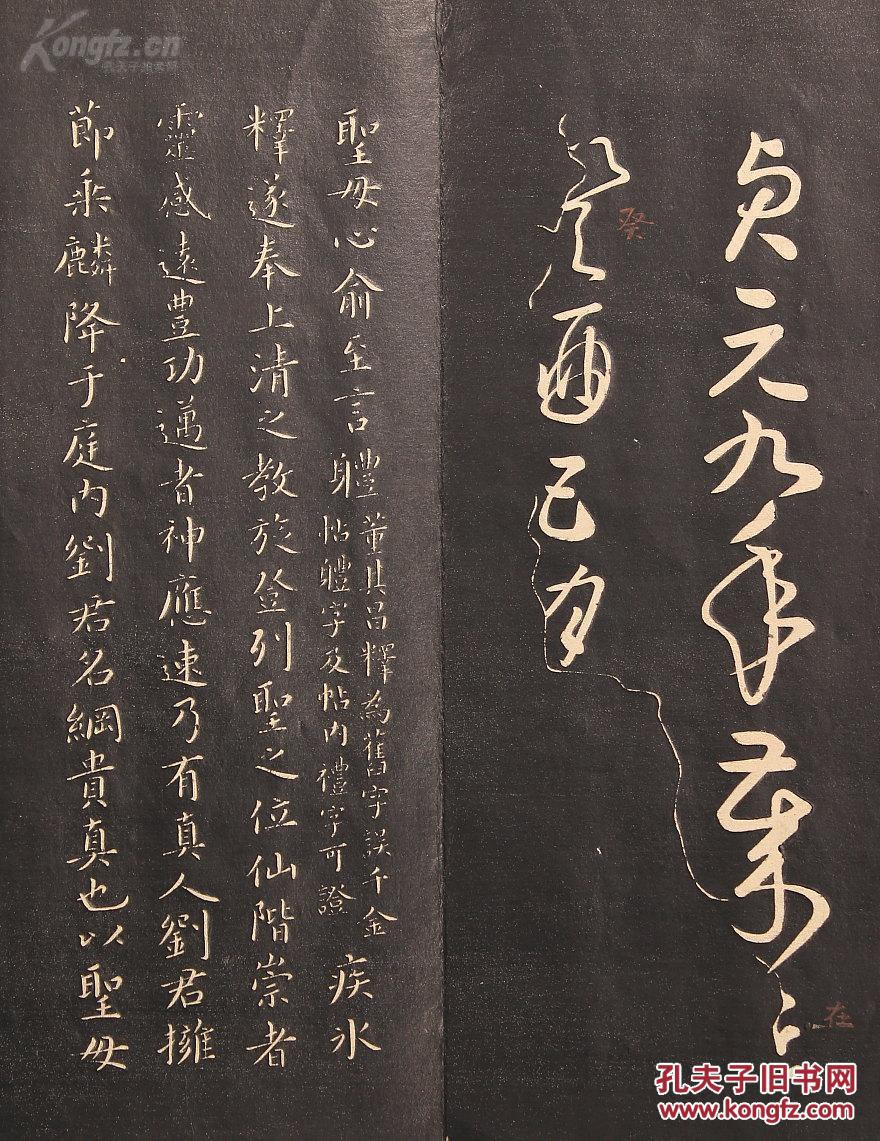 Kongfz.cn
貞元九年歲在
在
癸酉五月
癸
聖母心俞至言軆
董其昌釋為舊字誤千金
帖軆字及帖内禮字可證
疾氷
釋遂奉上清之教旋登列聖之位仙階崇者
靈感遠豐功邁者神應速乃有真人劉君擁
節乘麟降于庭内劉君名綱貴真也以聖母
孔夫子旧书网
www.kongfz.com